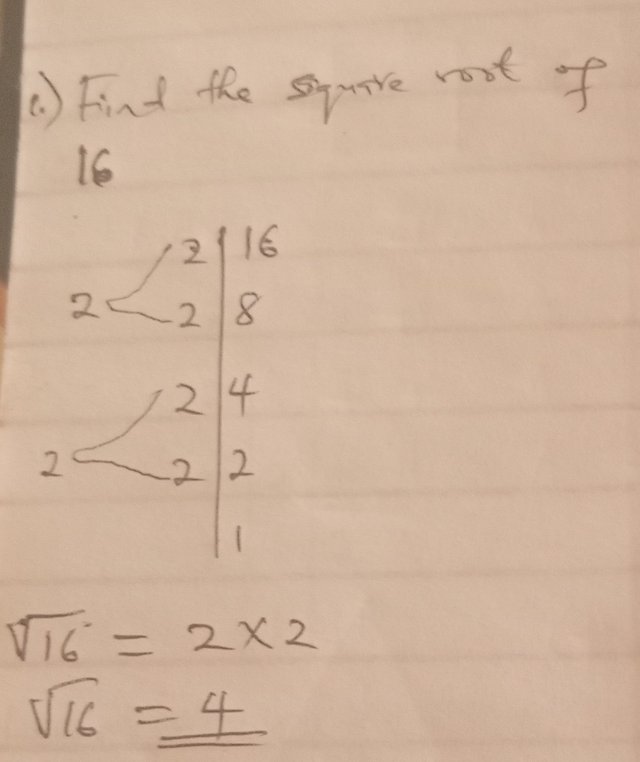 c.) Find the square root of
16
2 | 16
2 < 2 | 8
2 | 4
2 < 2 | 2
1
√16 = 2 × 2
√16 = 4